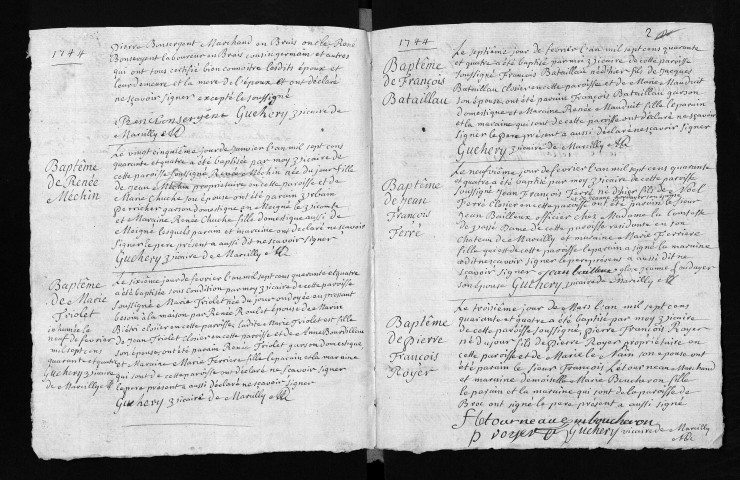 1744
Pierre Bonsergent Marchand ou Brais oncle René
Bonsergent laboureur au Brais cousin germain et autres
qui ont tous certifié bien connoitre lesdits époux et
leur demeure et la mere de l'époux et ont déclaré
ne sçavoir signer excepté le soussigné
Pier bonsergent Guehery vicaire de
Marilly
Baptême
de Renée
Mechin
Le vingt cinquième jour de janvier l'an mil sept cens
quarante et quatre a été baptisée par moy vicaire de
cette paroisse soussigné Renée Mechin née du jour fille
de Jean Mechin proprietaire en cette paroisse et de
Marie Chuche son epouse ont été parain Urbain
Perricher garson domestique de Meigné le vicomte
et Maraine Renée Chuche fille domestique aussi de
Meigné lesquels parain et maraine ont déclaré ne sçavoir
signer le pere present a aussi dit ne sçavoir signer
Guehery vicaire de Marilly
Baptême
de Marie
Friolet
inhumée le
neuf de fevrier
mil sept cens
quarante et quatre
Guehery vicaire
de Marilly
Le sixième jour de fevrier l'an mil sept cens quarante et quatre
a été baptisée sous condition par moy vicaire de cette paroisse
soussigné Marie Friolet née du jour ondoyée en pressant
besoin a la maison par Renée Roulet epouse de Marin
closier en cette paroisse laditte Marie Friolet est fille
de Jean Friolet closier en cette paroisse et de Anne Bourdilleau
son epouse ont été parain René Friolet garson domestique
et Maraine Marie Ferriere fille le parain et la maraine
qui sont de cette paroisse ont déclaré ne sçavoir signer
le pere present a aussi déclaré ne sçavoir signer
Guehery vicaire de Marilly
2
1744
Baptême
de François
Bataillau
Le septième jour de fevrier l'an mil sept cens quarante
et quatre a été baptisé par moi vicaire de cette paroisse
soussigné François Bataillau né d'hier fils de Jacques
Bataillau closier en cette paroisse et de Marie Mauduit
son epouse ont été parain François Bataillau garson
domestique et Maraine Renée Mauduit fille le parain
et la maraine qui sont de cette paroisse ont déclaré ne sçavoir
signer le pere present a aussi déclaré ne sçavoir signer
Guehery vicaire de Marilly
Baptême
de Jean
François
Ferré
Le neufvième jour de fevrier l'an mil sept cens quarante
et quatre a été baptisé par moy vicaire de cette paroisse
soussigné Jean François Ferré né d'hier fils de Noel
Ferré closier en cette paroisse ont été parain le sieur
Jean Bailleux officier chez Madame la Comtesse
de Dame de cette paroisse residante en son
Chateau de Marilly et maraine Marie Ferriere
fille qui est de cette paroisse le parain a signé la maraine
a dit ne sçavoir signer le pere present a aussi dit ne
sçavoir signer
son epouse Guehery vicaire de Marilly
Baptême
de Pierre
François
Royer
Le troisième jour de Mars l'an mil sept cens
quarante et quatre a été baptisé par moy vicaire
de cette paroisse soussigné, Pierre François Royer
né du jour fils de Pierre Royer proprietaire en
cette paroisse et de Marie le Nain son epouse ont
été parain le sieur François Letourneau Marchand
et maraine demoiselle Marie Boucheron fille
le parain et la maraine qui sont de la paroisse de
Broc ont signé le pere present a aussi signé
f letourneau m boucheron
p royer Guehery vicaire de Marilly